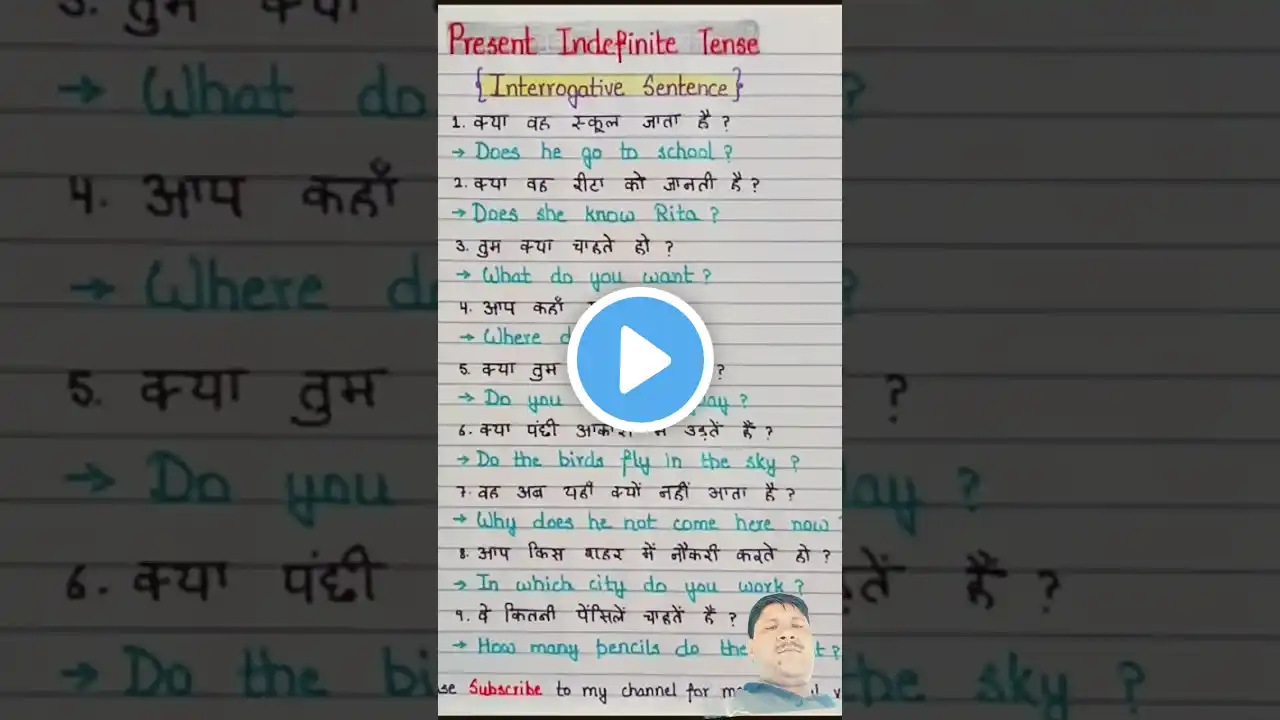 Present Indefinite Tense
{Interrogative Sentence}
1. क्या वह स्कूल जाता है ?
→ Does he go to school ?
2. क्या वह रीटा को जानती है ?
→ Does she know Rita ?
3. तुम क्या चाहते हो ?
→ What do you want ?
4. आप कहाँ
→ Where
5. क्या तुम ?
→ Do you ?
6. क्या पंछी आकाश में उड़तें हैं ?
→ Do the birds fly in the sky ?
7. वह अब यहाँ क्यों नहीं आता है ?
→ Why does he not come here now
8. आप किस शहर में नौकरी करते हो ?
→ In which city do you work ?
9. वे कितनी पेंसिलें चाहतें है ?
→ How many pencils do ?
Subscribe to my channel for